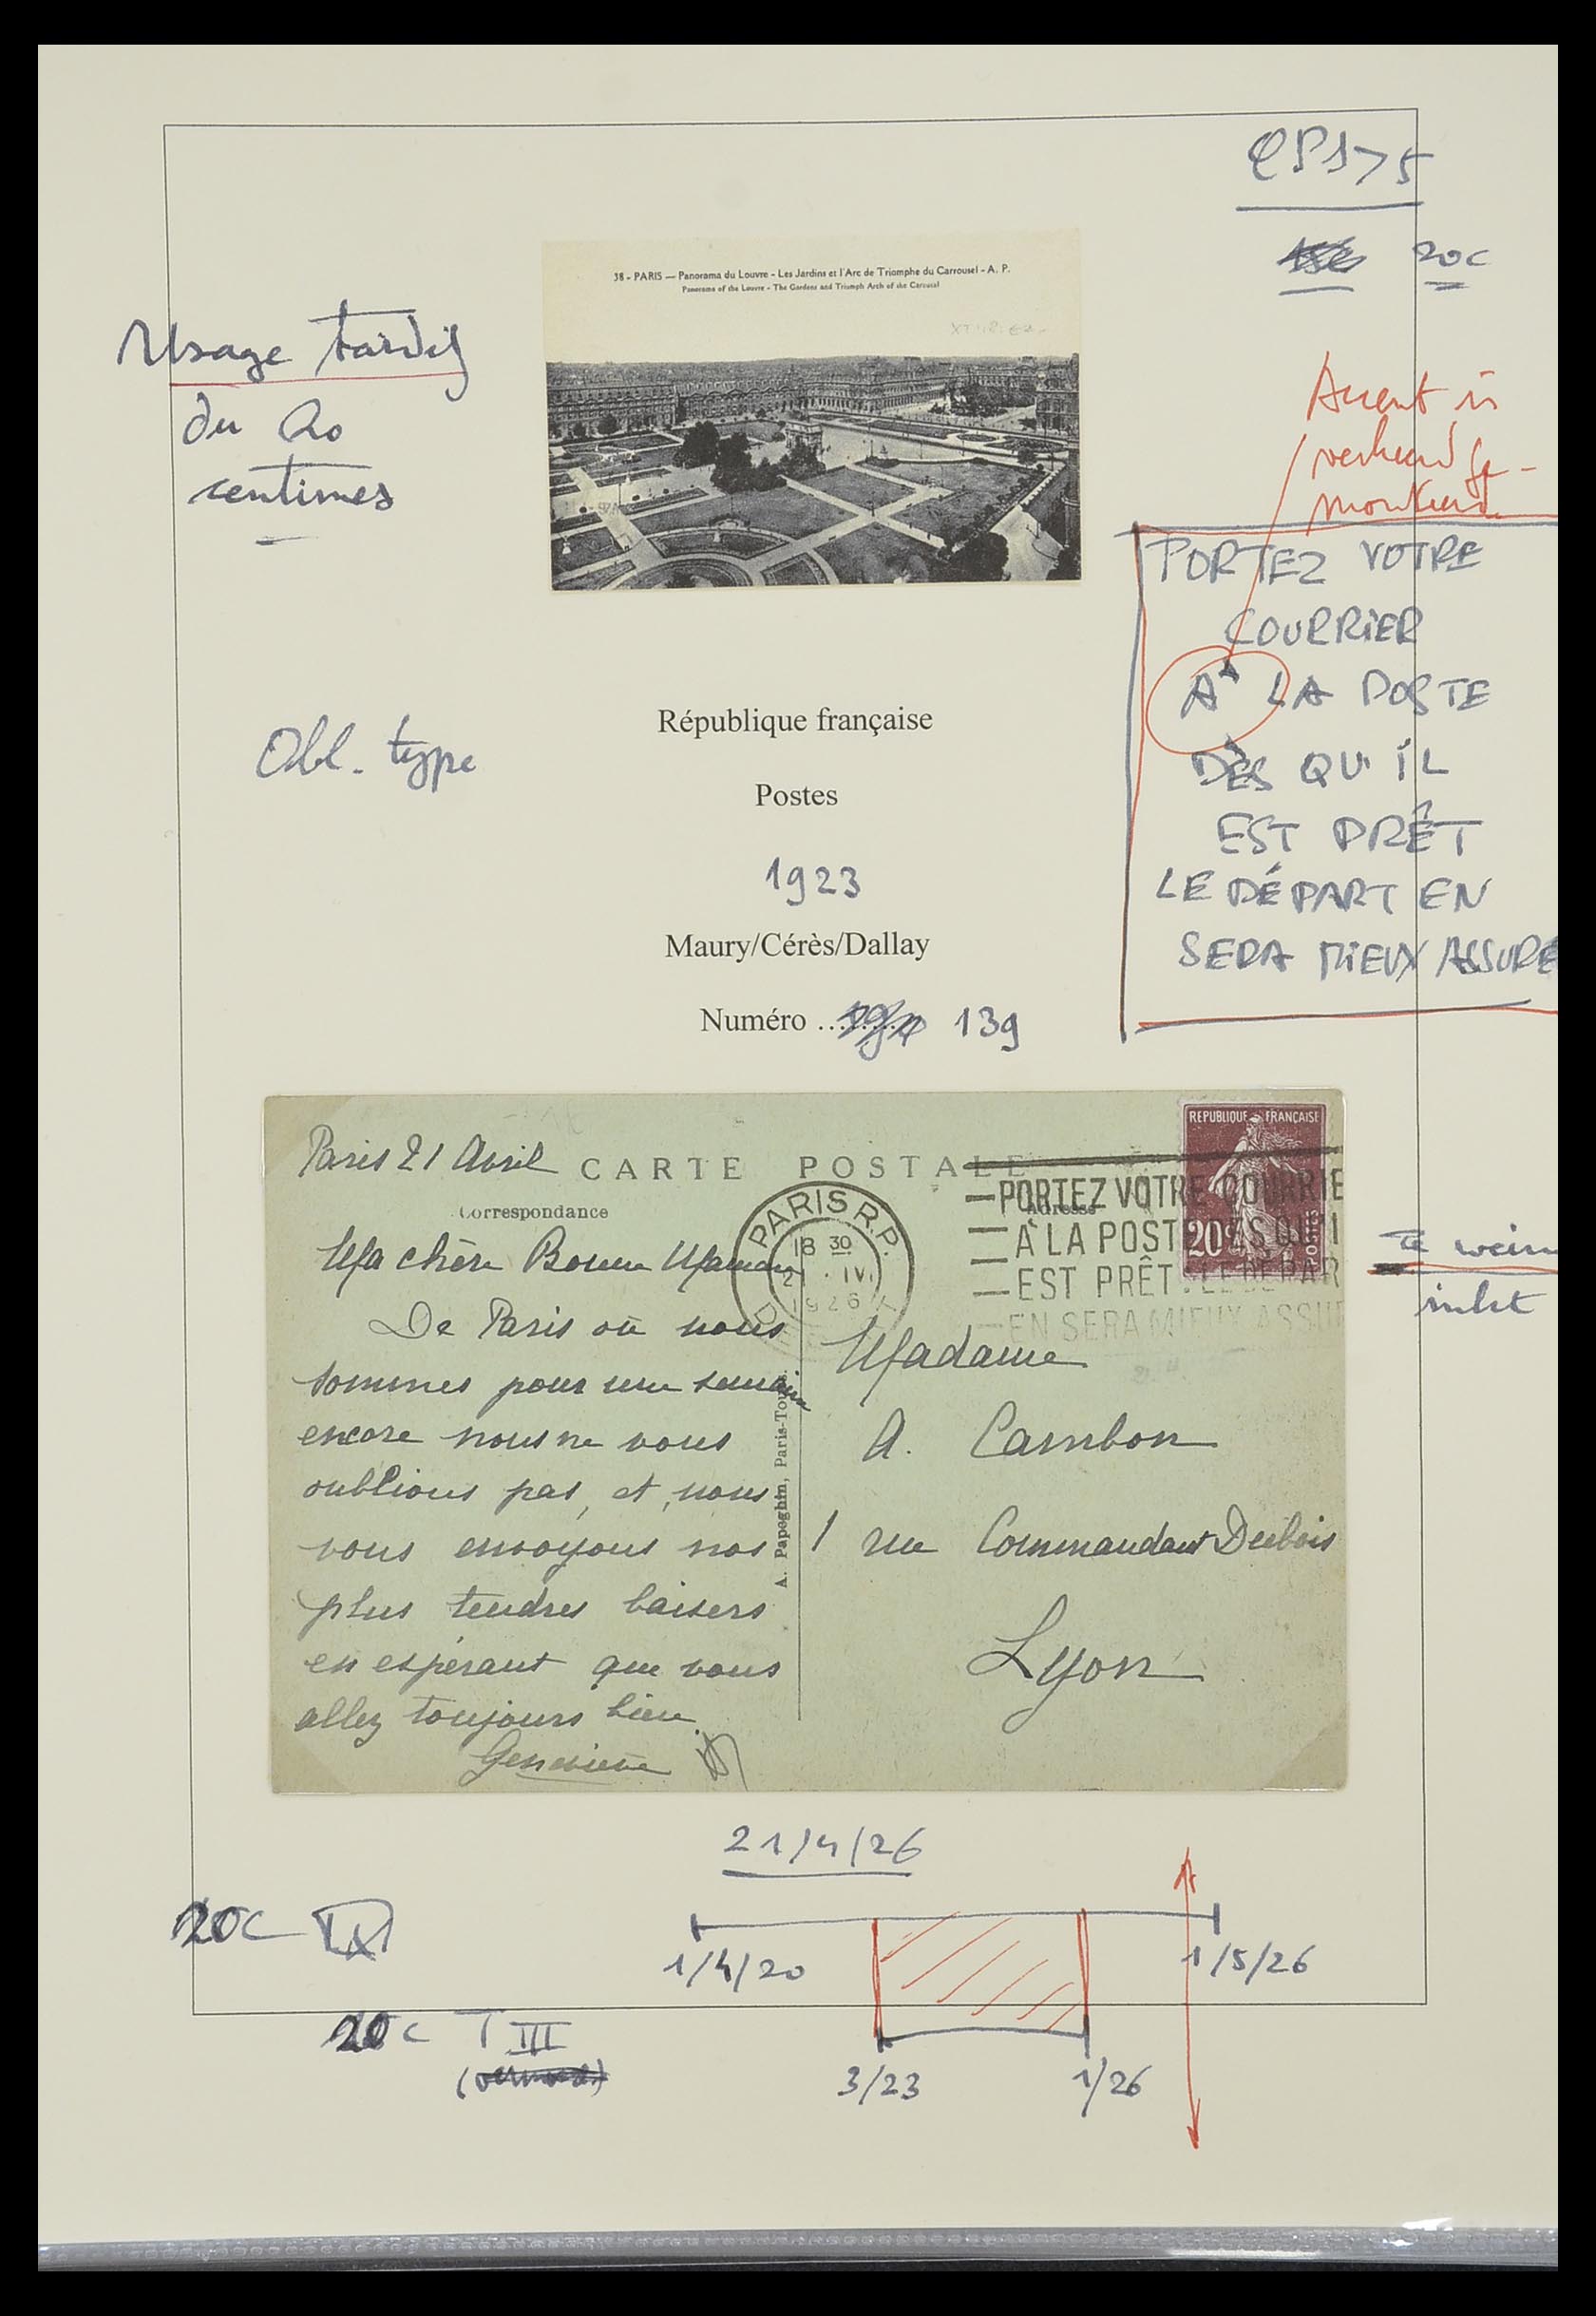 20c
38 - PARIS — Panorama du Louvre - Les Jardins et l'Arc de Triomphe du Carrousel - A. P.
Panorama of the Louvre - The Gardens and Triumph Arch of the Carousel
Usage tardif
du 20
centimes
Accent is
PORTEZ VOTRE
COURRIER
À LA POSTE
DÈS QU'IL
EST PRÊT
LE DÉPART EN
SERA MIEUX ASSURE
Obl. type
République française
Postes
1923
Maury/Cérès/Dallay
Numéro ......... 139
Paris 21 Avril
CARTE POSTALE
Correspondance
Adresse
REPUBLIQUE FRANÇAISE
20c
POSTES
PARIS R.P.
18 30
21 . IV.
1926
DEPART
PORTEZ VOTRE COURRIE
À LA POSTE DÈS QU'I
EST PRÊT. LE DEPAR
EN SERA MIEUX ASSUR
Ma chère Bonne Maman
De Paris où nous
sommes pour une semaine
encore nous ne vous
oublions pas, et nous
vous envoyons nos
plus tendres baisers
en espérant que vous
allez toujours bien.
Geneviève
A. Papeghin, Paris-Tours.
Madame
A. Cambon
1 rue Commandant Dubois
Lyon
te wein
inkt
21/4/26
20c
1/4/20
1/5/26
20c T III
3/23
1/26